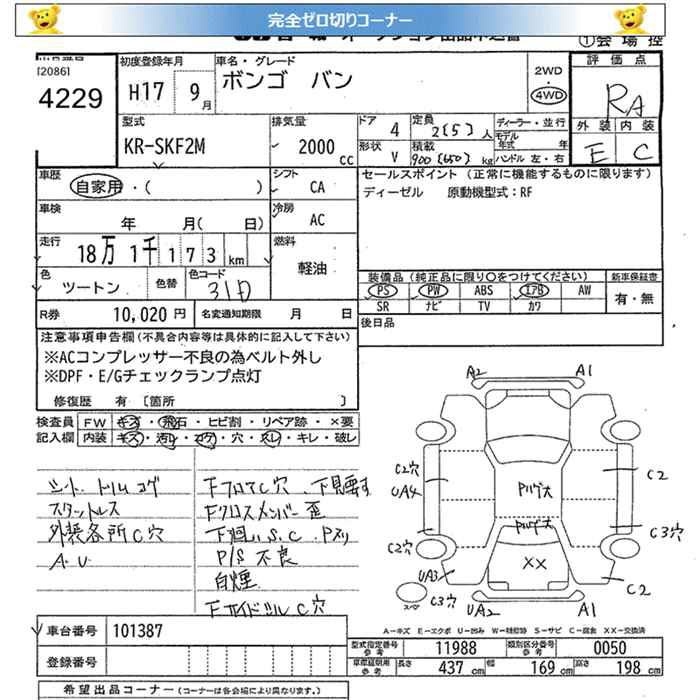 完全ゼロ切りコーナー
①会場控
[2086]
4229
初度登録年月
H17 9月
車名・グレード
ボンゴ バン
2WD
・
4WD
評価点
RA
外装 内装
E C
型式
KR-SKF2M
排気量
2000 cc
ドア 4
定員 2[5]人
ディーラー・並行
モデル年式 年式
形状 V
積載 900[650]kg
ハンドル 左・右
車歴
自家用・( )
シフト
CA
セールスポイント(正常に機能するものに限ります)
ディーゼル 原動機型式:RF
車検
年 月( 日)
冷房
AC
走行
18万1千173km
燃料
軽油
色
ツートン
色替
色コード
31D
装備品(純正品に限り○をつけてください)
新車保証書
PS PW ABS エアB AW
SR ナビ TV カワ
有・無
R券 10,020円
名変通知期限 月 日
後日品
注意事項申告欄(不具合内容等は具体的に記入して下さい)
※ACコンプレッサー不良の為ベルト外し
※DPF・E/Gチェックランプ点灯
修復歴 有 [箇所 ]
検査員 FW キズ・飛石・ヒビ割・リペア跡・×要
記入欄 内装 キズ・汚レ・コゲ・穴・スレ・キレ・破レ
シート、トリムコゲ
スタットレス
外装各所C穴
A.U
FフロアC穴、下見要す
Fクロスメンバー歪
下廻りS.C Pヌリ
P/S不良
白煙
FサイドシルC穴
A2 A1
C2穴
UA4
C2
Pハゲ大
Pハゲ大
C3穴
C2穴
XX
UA3
C2
スペア
C3穴
UA2 A1
A－キズ E－エクボ U－凹み W－補修跡 S－サビ C－腐食 XX－交換済
車台番号 101387
登録番号
型式指定番号 参考 11988
類別区分番号 参考 0050
車庫証明用 参考 長さ 437 cm 幅 169 cm 高さ 198 cm
希望出品コーナー(コーナーは各会場により異なります。)